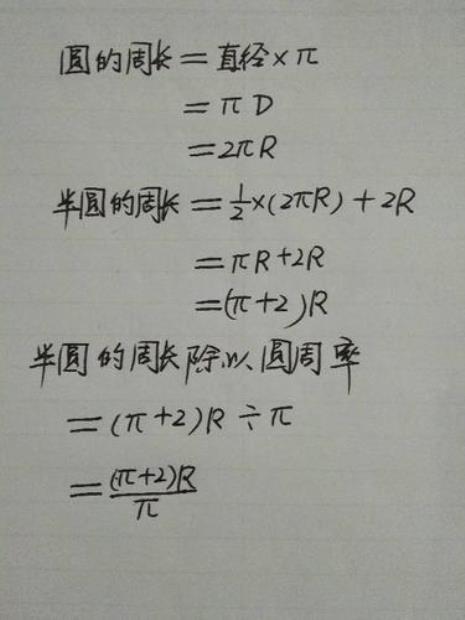 圆的周长=直径×π
=πD
=2πR
半圆的周长=½×(2πR)+2R
=πR+2R
=(π+2)R
半圆的周长除以圆周率
=(π+2)R÷π
=(π+2)R/π